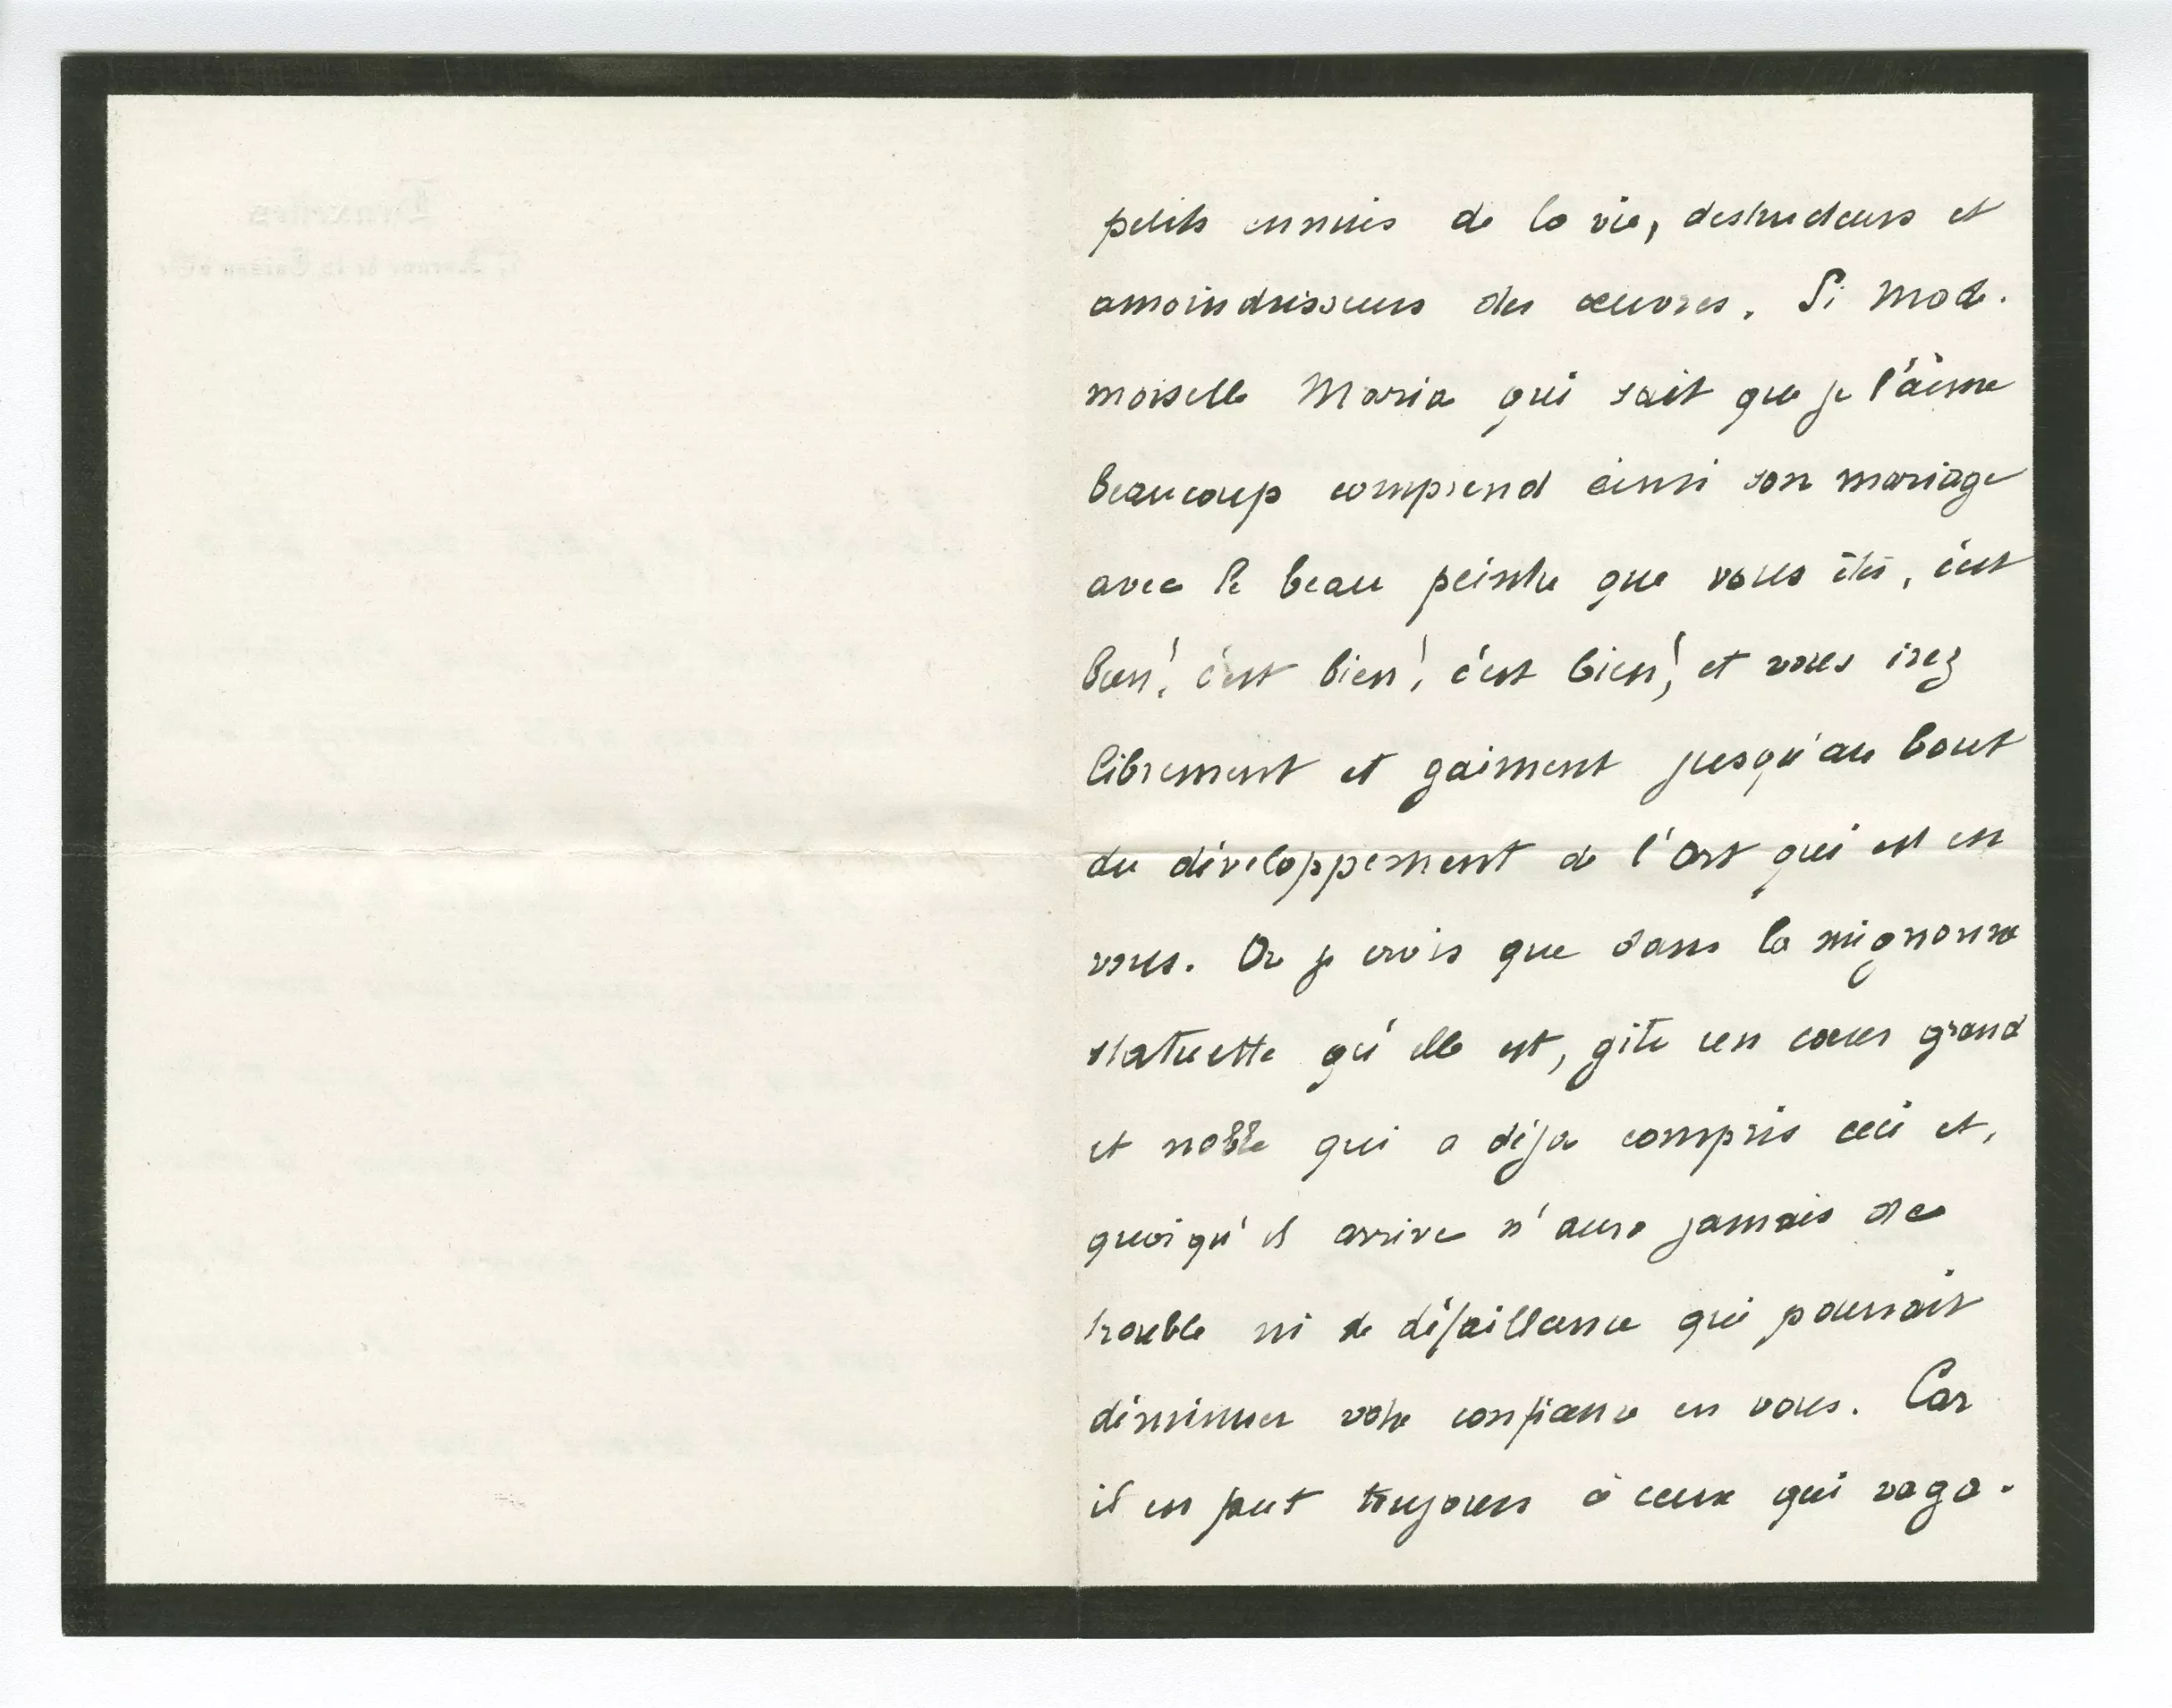 petits ennuis de la vie, destructeurs et
amoindrisseurs des œuvres. Si Made-
moiselle Maria qui sait que je l'aime
beaucoup comprend ainsi son mariage
avec le beau peintre que vous êtes, c'est
bien! c'est bien! c'est bien! et vous irez
librement et gaiment jusqu'au bout
du développement de l'art qui est en
vous. Or je crois que dans la mignonne
statuette qu'elle est, gite un cœur grand
et noble qui a déja compris ceci et,
quoiqu'il arrive n'aura jamais de
trouble ni de défaillance qui pourrait
diminuer votre confiance en vous. Car
il en faut toujours à ceux qui vaga-